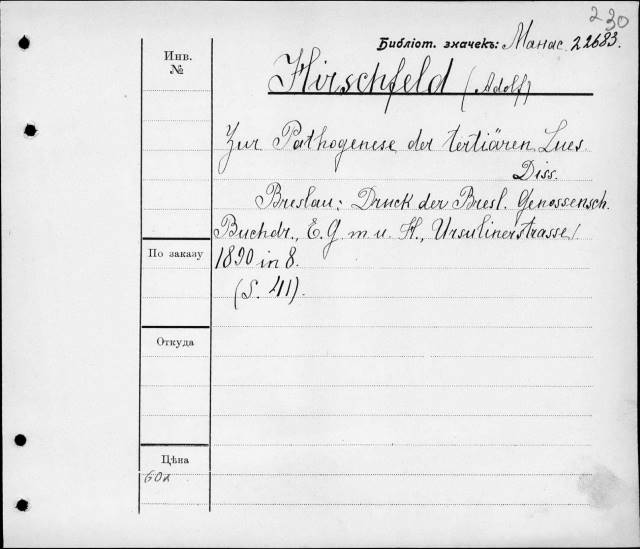 230
Библіот. значекъ: Манас. 22683.
Инв. №
Hirschfeld (Adolf)
Zur Pathogenese der tertiären Lues.
Diss.
Breslau: Druck der Bresl. Genossensch.
Buchdr., E. G. m. u. H., Ursulinerstrasse 1.
По заказу
1890 in 8.
(S. 41).
Откуда
Цѣна